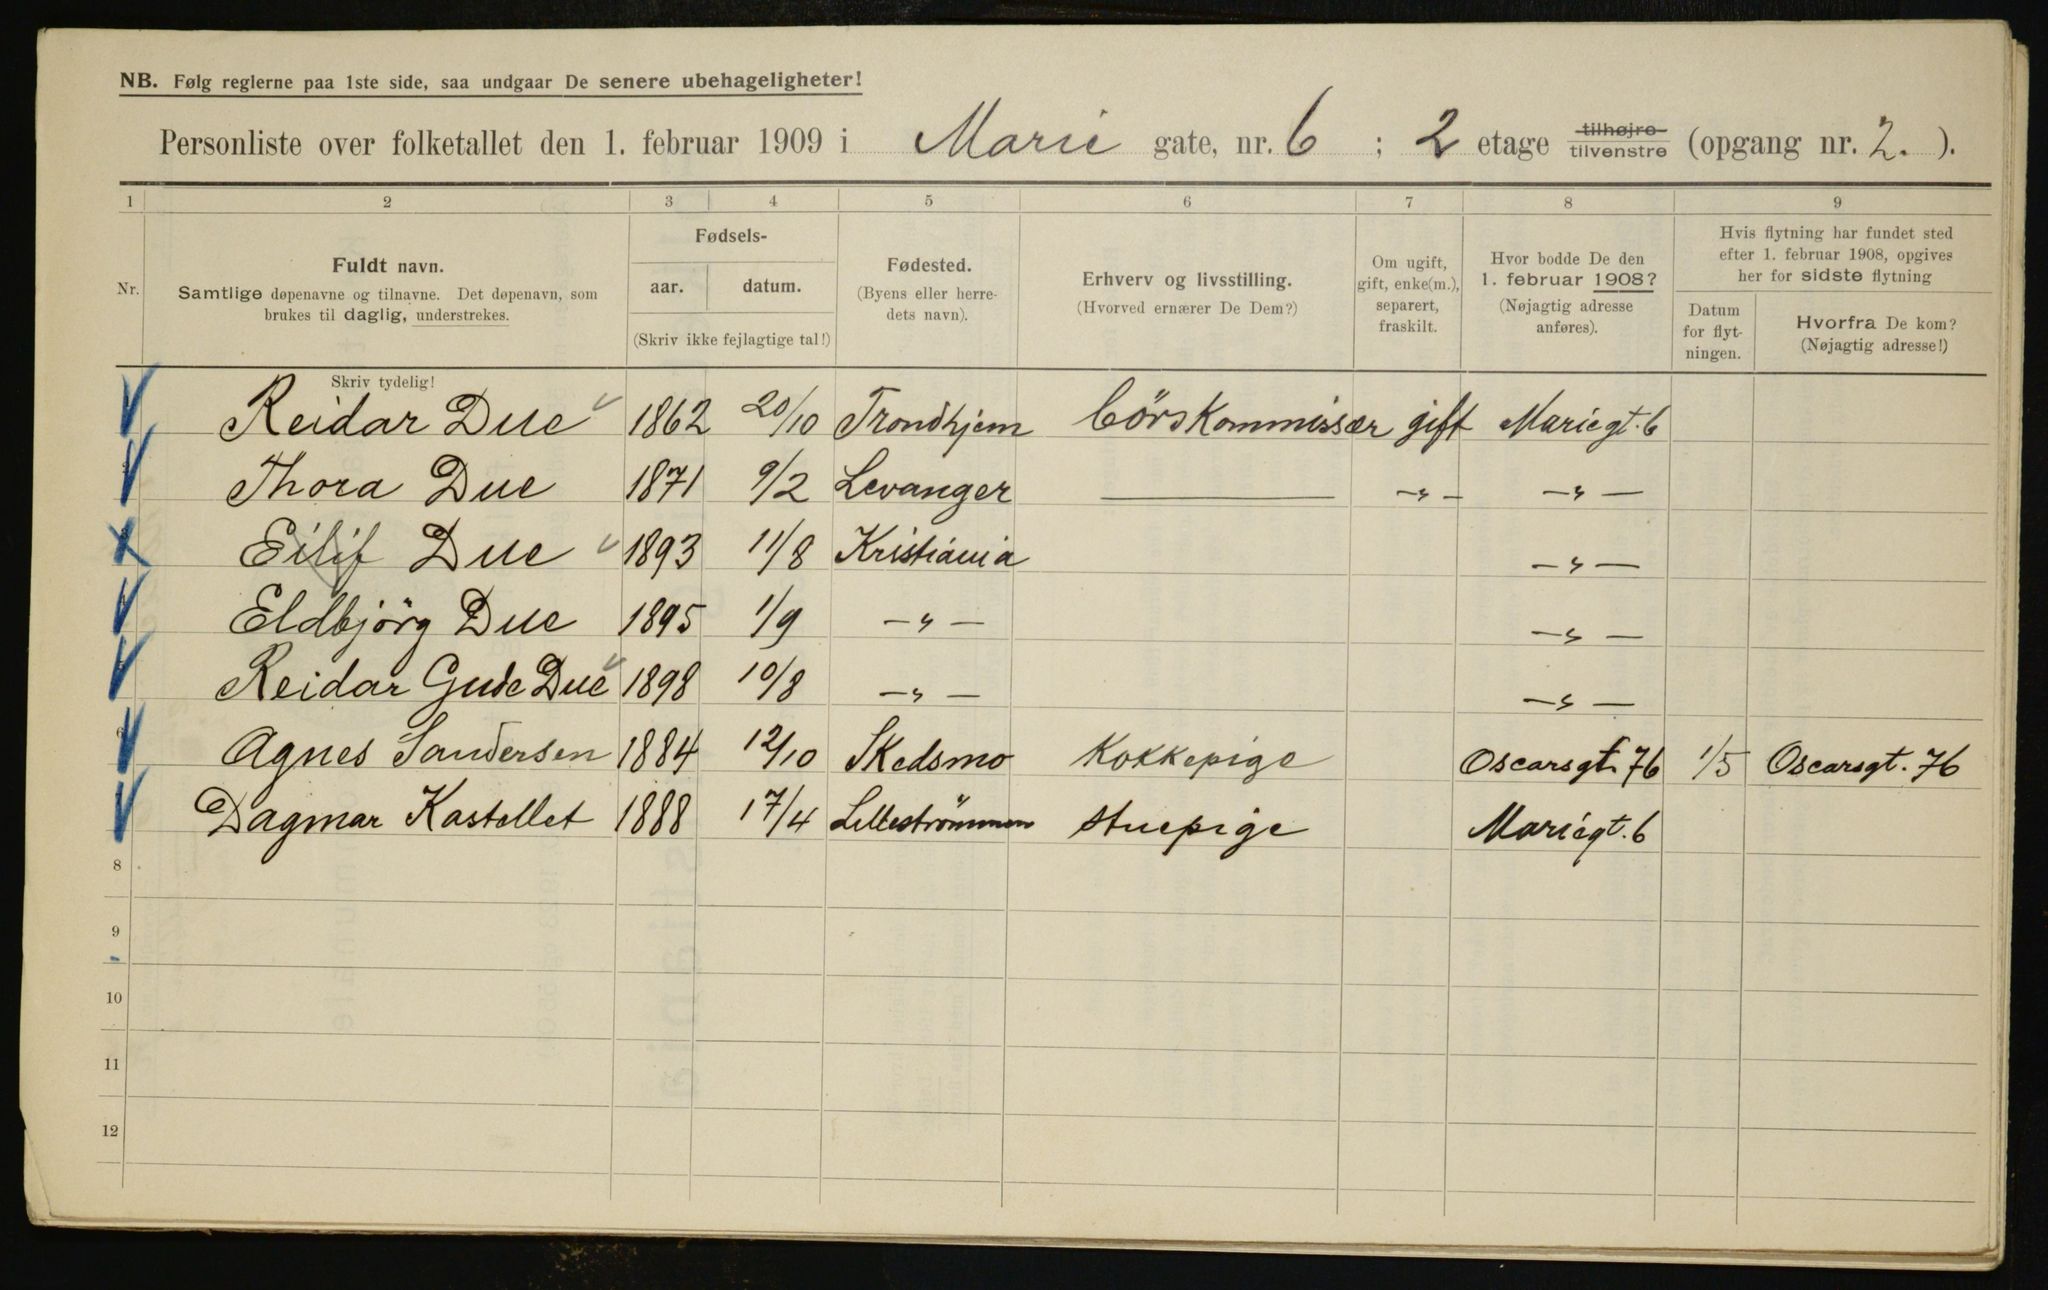 NB. Følg reglerne paa 1ste side, saa undgaar De senere ubehageligheter!
Personliste over folketallet den 1. februar 1909 i Marie gate, nr. 6 ; 2 etage tilhøjre tilvenstre (opgang nr. 2. ).
1 2 3 4 5 6 7 8 9
Nr.
Fuldt navn.
Samtlige døpenavne og tilnavne. Det døpenavn, som
brukes til daglig, understrekes.
Fødsels-
aar. datum.
(Skriv ikke fejlagtige tal!)
Fødested.
(Byens eller herre-
dets navn).
Erhverv og livsstilling.
(Hvorved ernærer De Dem?)
Om ugift,
gift, enke(m.),
separert,
fraskilt.
Hvor bodde De den
1. februar 1908?
(Nøjagtig adresse
anføres).
Hvis flytning har fundet sted
efter 1. februar 1908, opgives
her for sidste flytning
Datum
for flyt-
ningen.
Hvorfra De kom?
(Nøjagtig adresse!)
Skriv tydelig!
Reidar Due 1862 20/10 Trondhjem Börskommissær gift Mariegt. 6
Thora Due 1871 9/2 Levanger —— -„- -„-
Eilif Due 1893 11/8 Kristiania -„-
Eldbjörg Due 1895 1/9 -„- -„-
Reidar Gude Due 1898 10/8 -„- -„-
6 Agnes Sandersen 1884 12/10 Skedsmo Kokkepige Oscarsgt. 76 1/5 Oscarsgt. 76
Dagmar Kastellet 1888 17/4 Lilleströmmen Stuepige Mariegt. 6
8
9
10
11
12